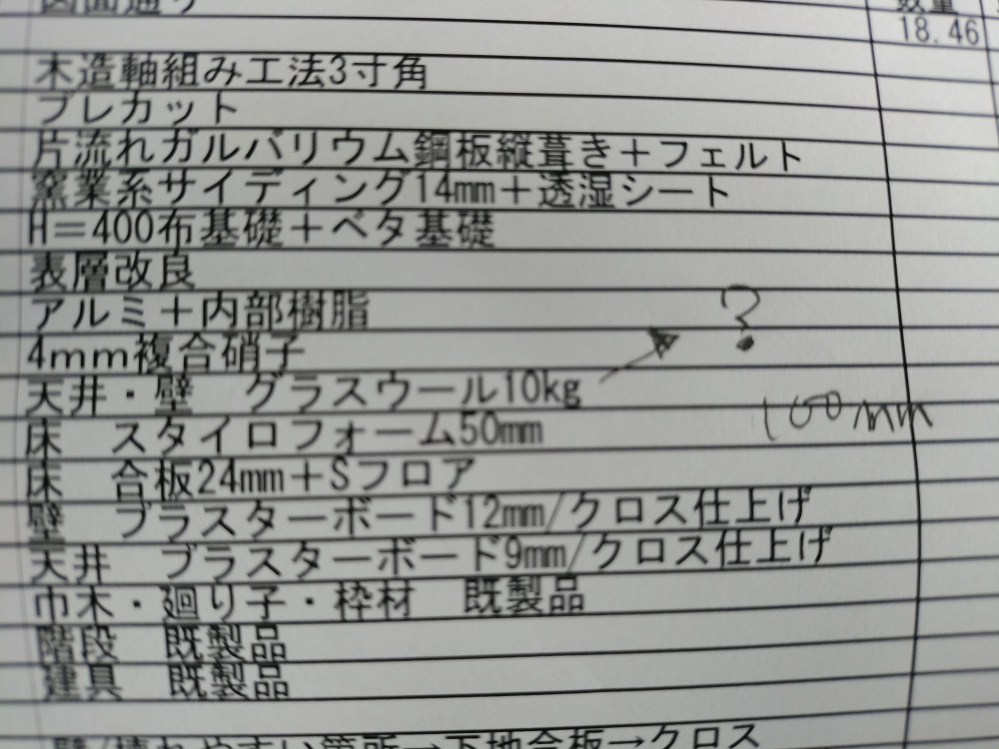 図面通り
数量
18.46
木造軸組み工法3寸角
プレカット
片流れガルバリウム鋼板縦葺き＋フェルト
窯業系サイディング14mm＋透湿シート
H＝400布基礎＋ベタ基礎
表層改良
アルミ＋内部樹脂
?
4mm複合硝子
天井・壁　グラスウール10kg
100mm
床　スタイロフォーム50mm
床　合板24mm＋Sフロア
壁　プラスターボード12mm/クロス仕上げ
天井　プラスターボード9mm/クロス仕上げ
巾木・廻り子・枠材　既製品
階段　既製品
建具　既製品
壁/壊れやすい箇所→下地合板→クロス